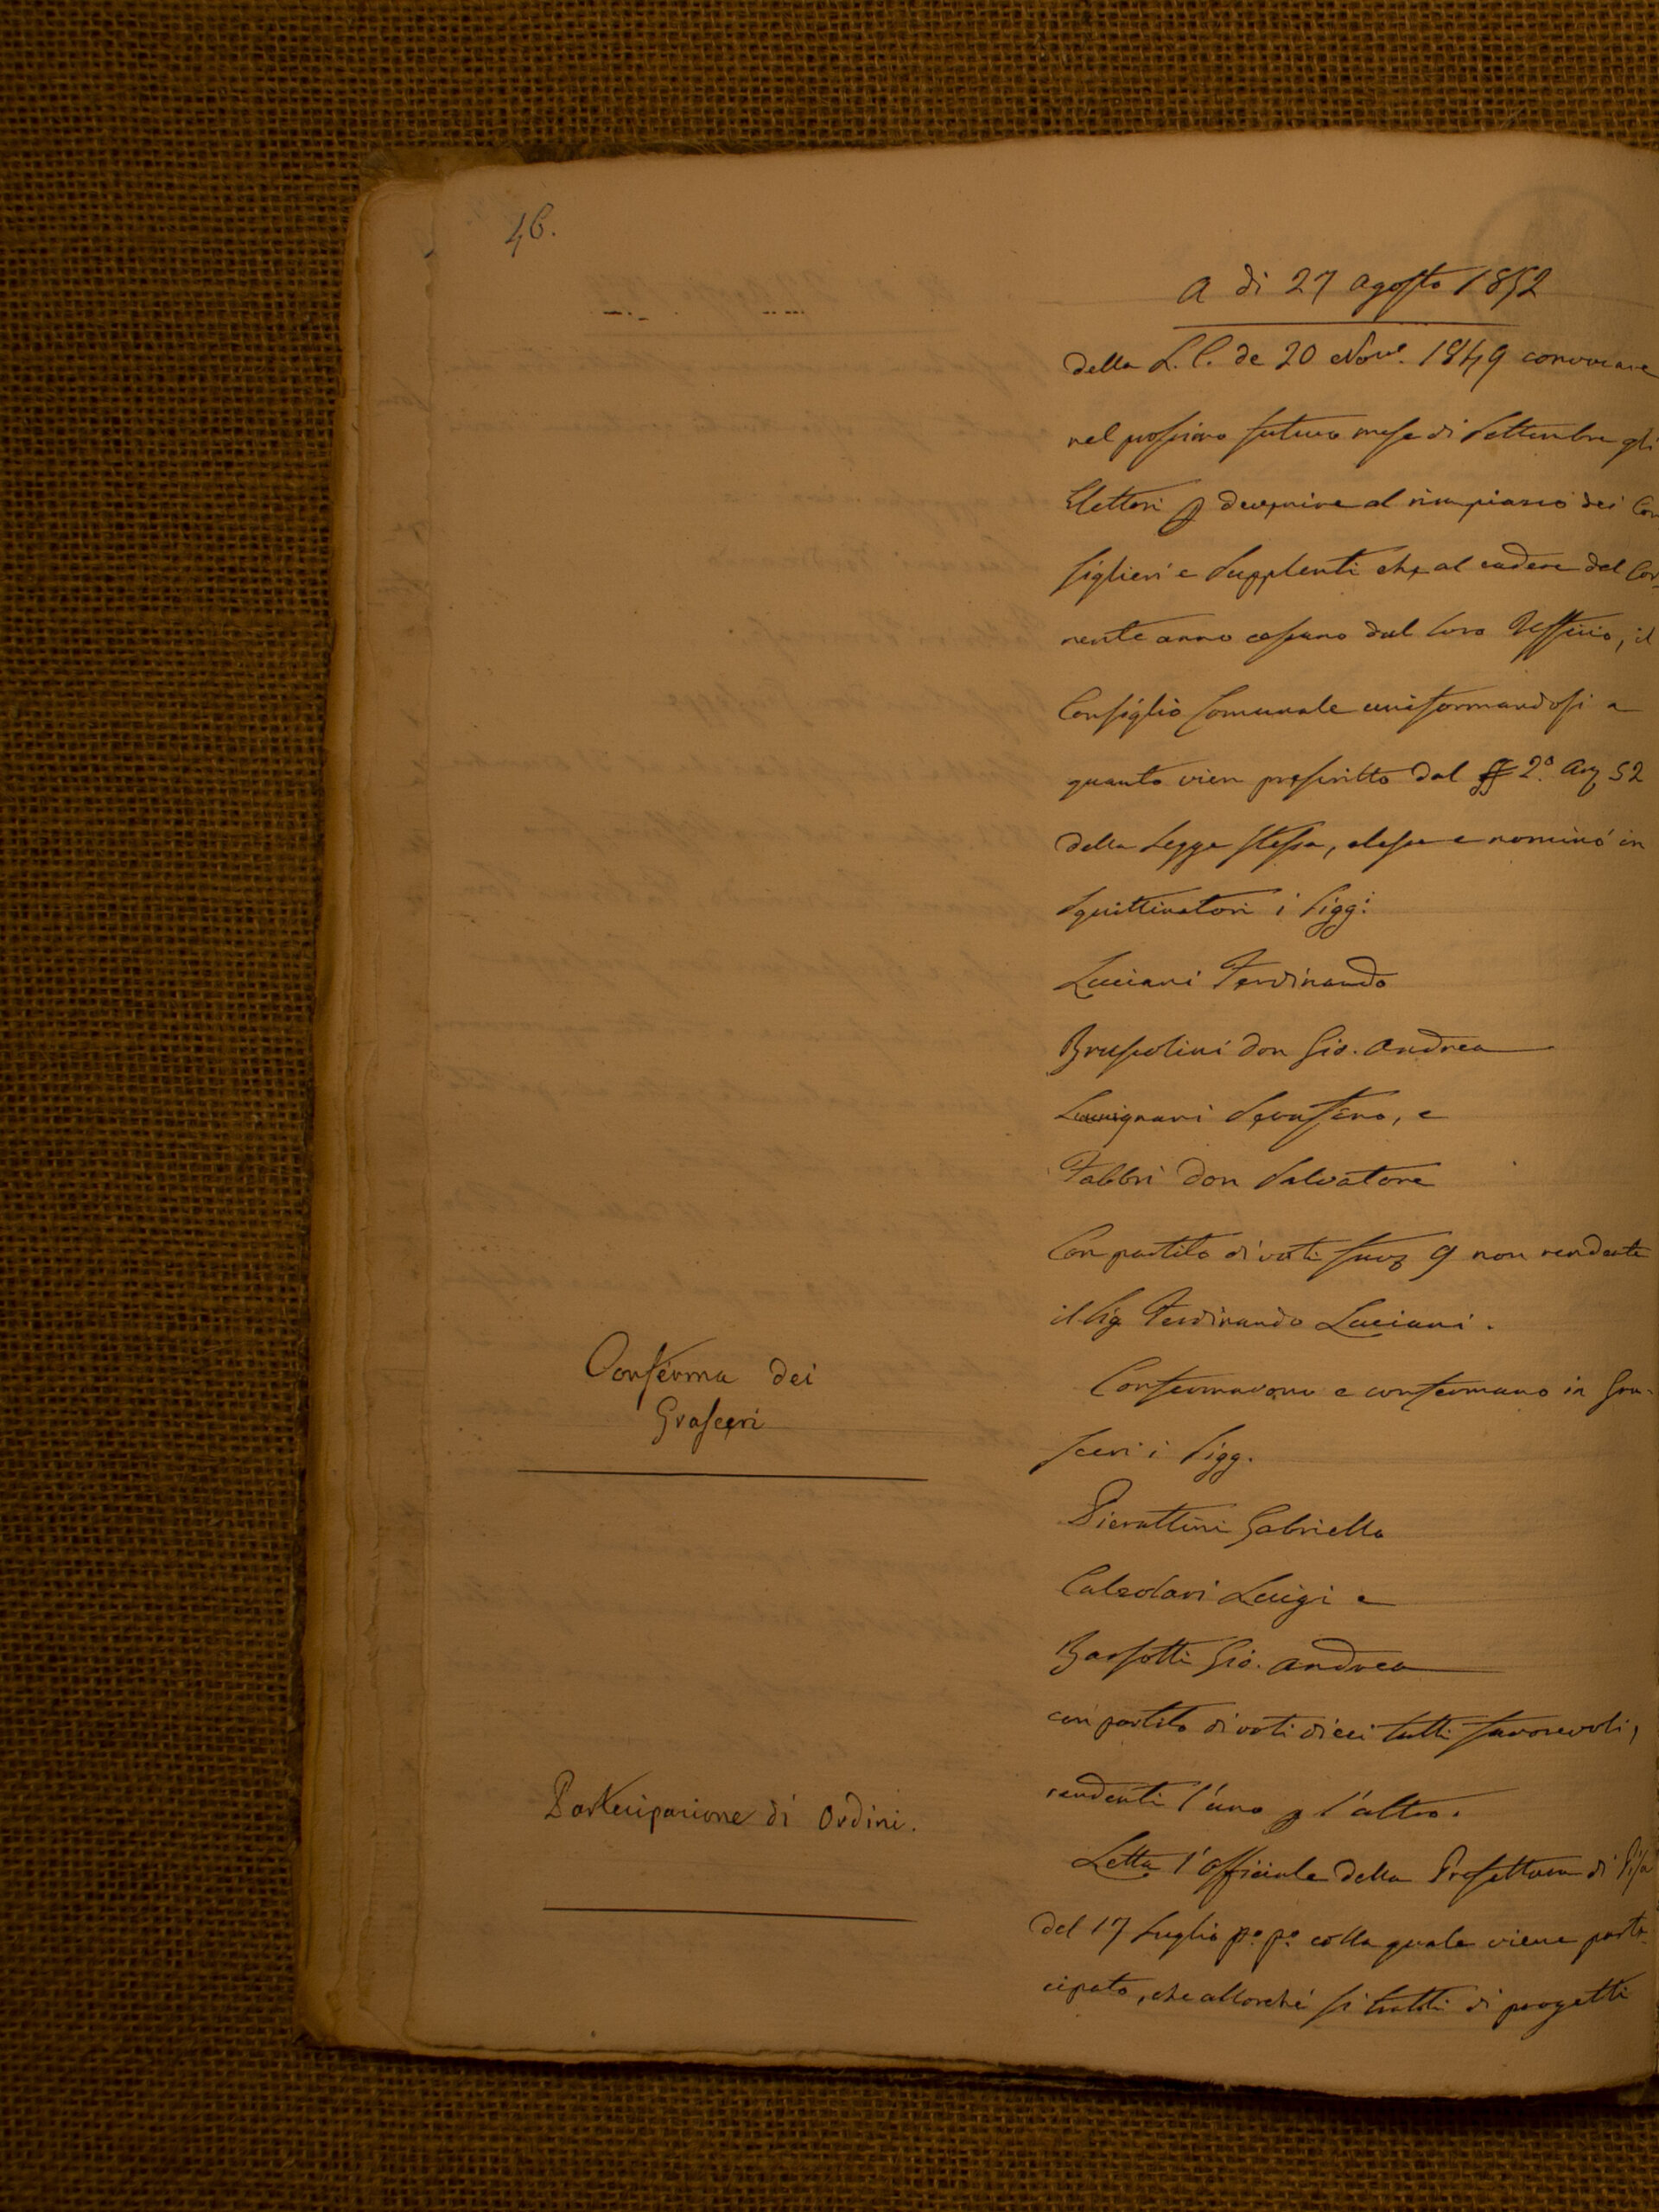 46.
A di 27 Agosto 1852
della L. C. de 20 Nov.e 1849 convocare
nel prossimo futuro mese di Settembre gli
Elettori p devenire al rimpiazzo dei Con
siglieri e Supplenti che al cadere del Cor-
rente anno cessano dal loro Uffizio, il
Consiglio Comunale uniformandosi a
quanto vien prescritto dal § 2.o Art 52
della Legge stessa, elesse e nominò in
Squittinatori i Sigg:
Luciani Ferdinando
Bruscolini don Gio. Andrea
Savatino, e
Fabbri Don Salvatore
Con partito di voti fav 9 non rendente
il Sig Ferdinando Luciani.
Conferma dei
Grasceri
Confermarono e confermano in Gra-
sceri i Sigg.
Pierattini Gabriello
Calzolari Luigi e
Barsotti Gio. Andrea
con partito di voti dieci tutti favorevoli,
rendenti l'uno p l'altro.
Partecipazione di Ordini.
Letta l'officiale della Prefettura di Pisa
del 17 Luglio p.o p.o colla quale viene parte-
cipato, che allorchè si tratti di progetti